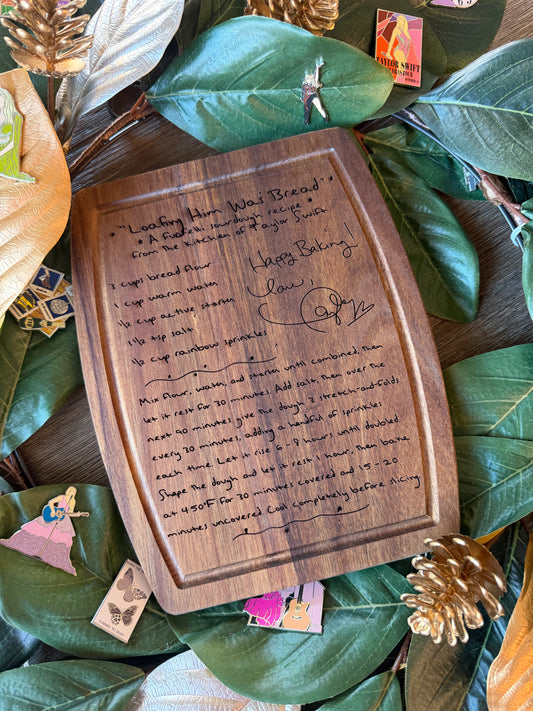 * "Loafing Him Was Bread" *
* A funfetti sourdough recipe *
from the kitchen of Taylor Swift
Happy Baking!
Love,
3 cups bread flour
1 cup warm water
1/2 cup active starter
1 1/2 tsp salt
1/2 cup rainbow sprinkles
Mix flour, water, and starter until combined, then
let it rest for 30 minutes. Add salt, then over the
next 90 minutes, give the dough 3 stretch-and-folds,
every 30 minutes, adding a handful of sprinkles
each time. Let it rise 6-8 hours until doubled.
Shape the dough and let it rest 1 hour, then bake
at 450°F for 30 minutes covered and 15-20
minutes uncovered. Cool completely before slicing.
TAYLOR SWIFT